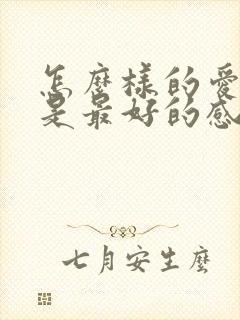 怎麼樣的愛
是最好的感
七月安生麼